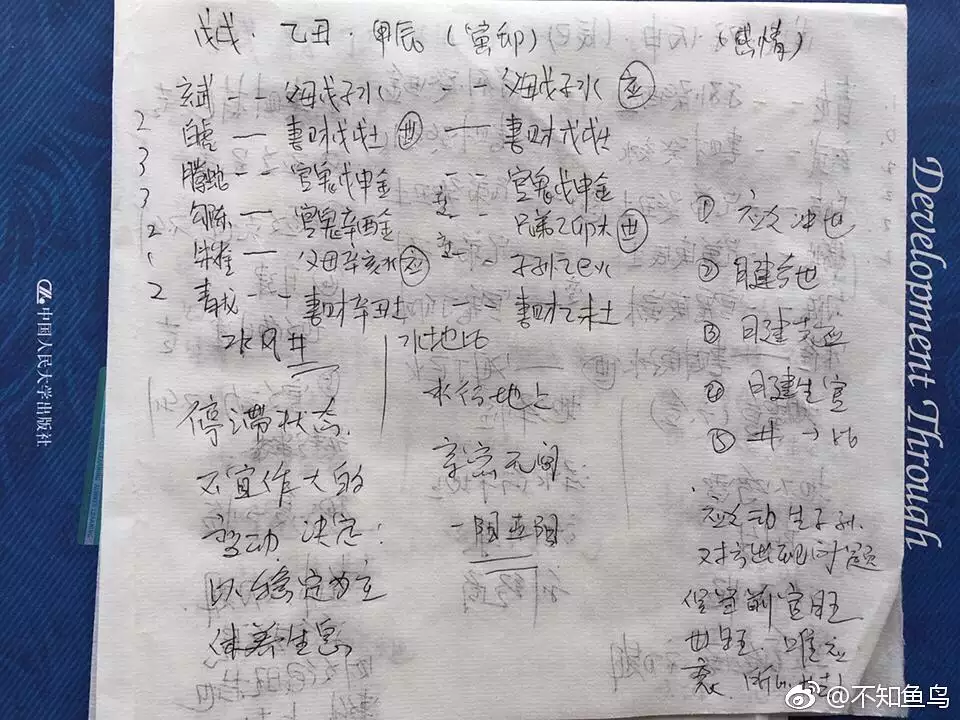 戊戌·乙丑·甲辰（寅卯） （感情）
玄武 -- 父母戊子水 -- 父母戊子水 应
2 白虎 — 妻财戊戌土 世 — 妻财戊戌土
3 腾蛇 -- 官鬼戊申金 -- 官鬼戊申金
3 勾陈 — 官鬼辛酉金 变 -- 兄弟乙卯木 世
2 朱雀 — 父母辛亥水 应 变 -- 子孙乙巳火
1
2 青龙 -- 妻财辛丑土 -- 妻财乙未土
水风井
水地比
停滞状态
不宜作大的
变动 决定：
以稳定为主
休养生息
水行地上
亲密无间
一阳五阴
① 应爻冲世
② 日建合世
③ 日建克应
④ 日建生官
⑤ 井→比
应爻动生子孙
对方出现问题
官旺
世旺 唯应
衰
Development Through
中国人民大学出版社
@不知鱼鸟